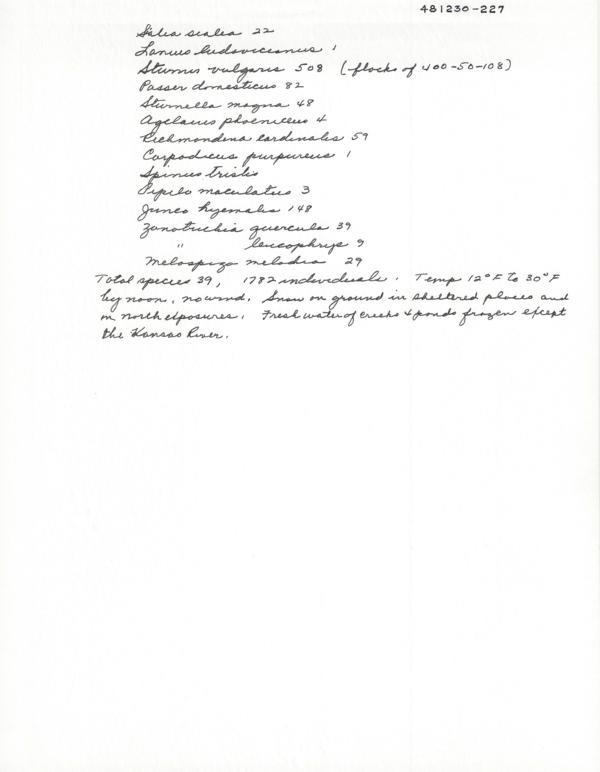 481230-227
Sialia sialia 22
Lanius ludovicianus 1
Sturnus vulgaris 508 (flocks of 400-50-108)
Passer domesticus 82
Sturnella magna 48
Agelaius phoeniceus 4
Richmondena cardinalis 59
Carpodicus purpureus 1
Spinus tristis
Pipilo maculatus 3
Junco hyemalis 148
Zonotrichia querula 39
" leucophrys 9
Melospiza melodia 29
Total species 39, 1782 individuals. Temp 12°F to 30°F
by noon, no wind. Snow on ground in sheltered places and
on north exposures. Fresh water of creeks & ponds frozen except
the Kansas River.